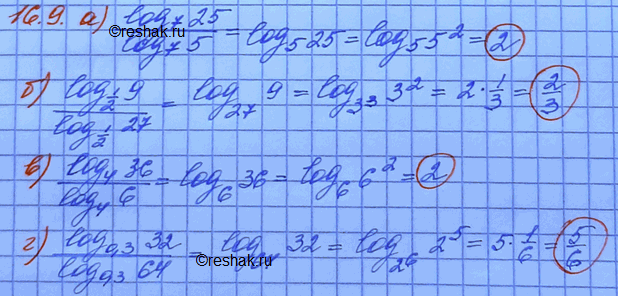 16.9. а) log₇ 25 / log₇ 5 = log₅ 25 = log₅ 5² = 2
б) log_{1/2} 9 / log_{1/2} 27 = log₂₇ 9 = log_{3³} 3² = 2·1/3 = 2/3
в) log₄ 36 / log₄ 6 = log₆ 36 = log₆ 6² = 2
г) log_{0,3} 32 / log_{0,3} 64 = log₆₄ 32 = log_{2⁶} 2⁵ = 5·1/6 = 5/6
©Reshak.ru
©Reshak.ru